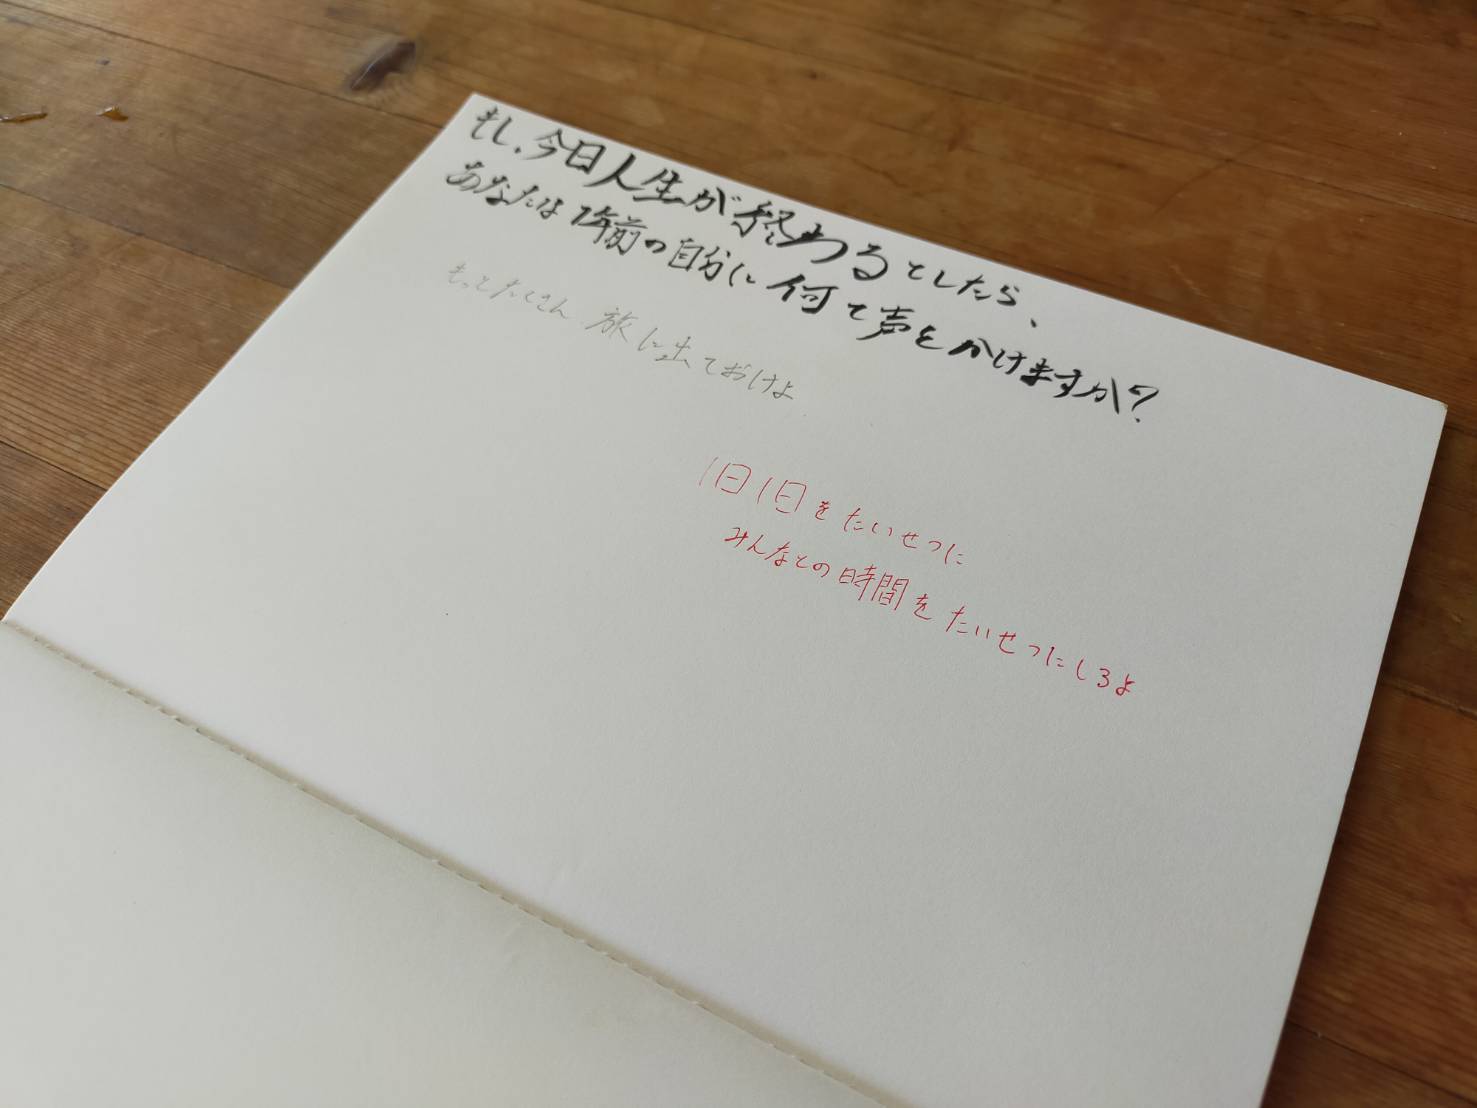 もし、今日人生が終わるとしたら、
あなたは1年前の自分に何て声をかけますか?
もっとたくさん旅に出ておけよ
1日1日をたいせつに
みんなとの時間をたいせつにしろよ